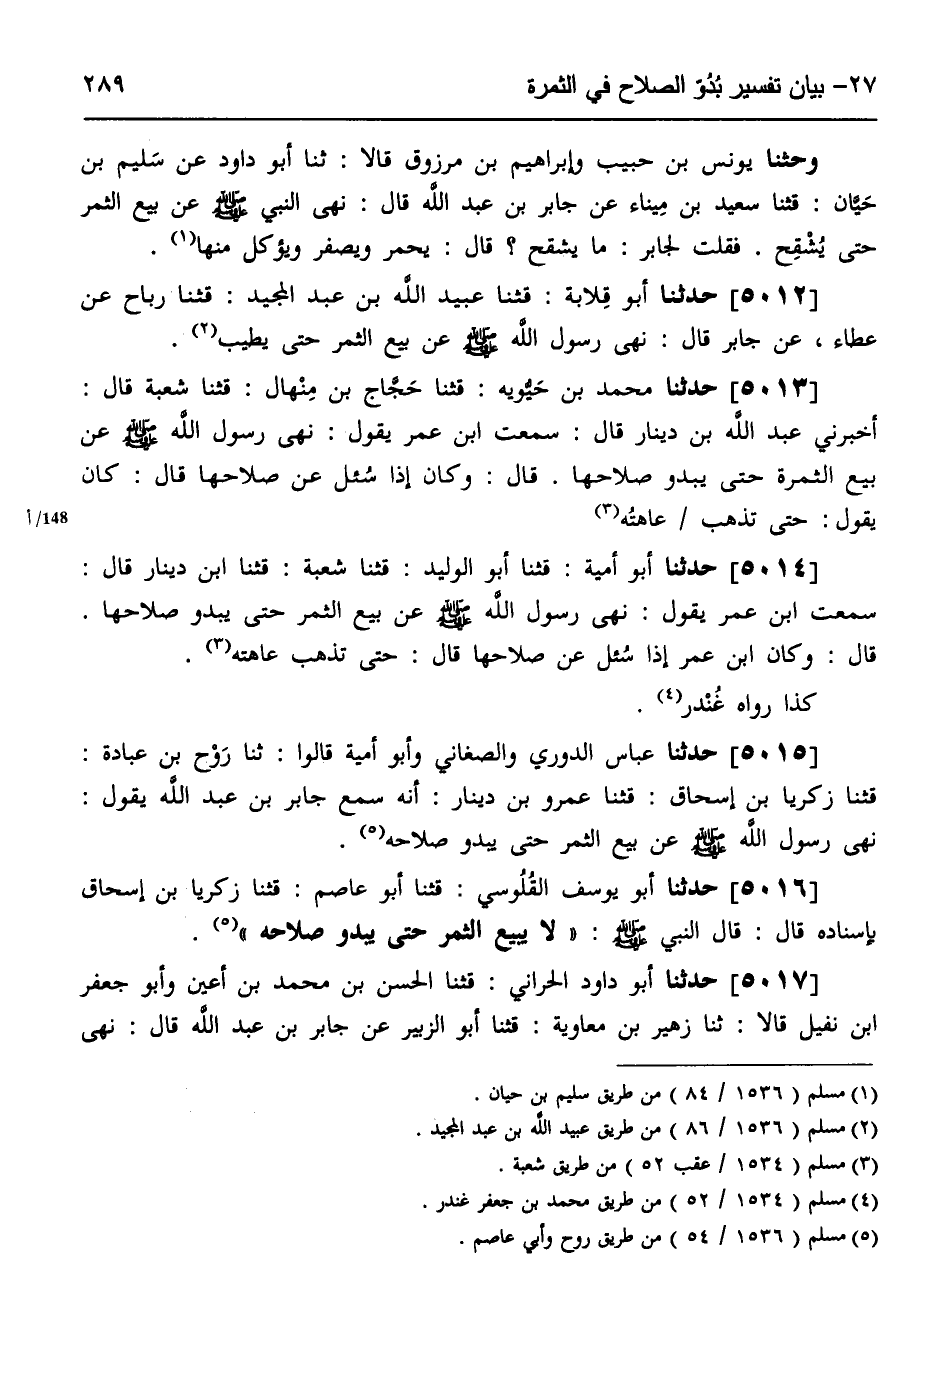 ٢٧- بيان تفسير بُدُوّ الصلاح في الثمرة ٢٨٩
وحثنا يونس بن حبيب وإبراهيم بن مرزوق قالا : ثنا أبو داود عن سَليم بن
حَيَّان : قثنا سعيد بن مِيناء عن جابر بن عبد اللَّه قال : نهى النبي ﷺ عن بيع الثمر
حتى يُشْقِح . فقلت لجابر : ما يشقح ؟ قال : يحمر ويصفر ويؤكل منها(١) .
[٥٠١٢] حدثنا أبو قِلابة : قثنا عبيد اللَّه بن عبد المجيد : قثنا رباح عن
عطاء ، عن جابر قال : نهى رسول اللَّه ﷺ عن بيع الثمر حتى يطيب(٢) .
[٥٠١٣] حدثنا محمد بن حَيُّويه : قثنا حَجَّاج بن مِنْهال : قثنا شعبة قال :
أخبرني عبد اللَّه بن دينار قال : سمعت ابن عمر يقول : نهى رسول اللَّه ﷺ عن
بيع الثمرة حتى يبدو صلاحها . قال : وكان إذا سُئل عن صلاحها قال : كان
يقول : حتى تذهب / عاهتُه(٣) 148/أ
[٥٠١٤] حدثنا أبو أمية : قثنا أبو الوليد : قثنا شعبة : قثنا ابن دينار قال :
سمعت ابن عمر يقول : نهى رسول اللَّه ﷺ عن بيع الثمر حتى يبدو صلاحها .
قال : وكان ابن عمر إذا سُئل عن صلاحها قال : حتى تذهب عاهته(٣) .
كذا رواه غُنْدر(٤) .
[٥٠١٥] حدثنا عباس الدوري والصغاني وأبو أمية قالوا : ثنا رَوْح بن عبادة :
قثنا زكريا بن إسحاق : قثنا عمرو بن دينار : أنه سمع جابر بن عبد اللَّه يقول :
نهى رسول اللَّه ﷺ عن بيع الثمر حتى يبدو صلاحه(٥) .
[٥٠١٦] حدثنا أبو يوسف القُلُوسي : قثنا أبو عاصم : قثنا زكريا بن إسحاق
بإسناده قال : قال النبي ﷺ : « لا يبيع الثمر حتى يبدو صلاحه »(٥) .
[٥٠١٧] حدثنا أبو داود الحراني : قثنا الحسن بن محمد بن أعين وأبو جعفر
ابن نفيل قالا : ثنا زهير بن معاوية : قثنا أبو الزبير عن جابر بن عبد اللَّه قال : نهى
(١) مسلم ( ١٥٣٦ / ٨٤ ) من طريق سليم بن حيان .
(٢) مسلم ( ١٥٣٦ / ٨٦ ) من طريق عبيد اللَّه بن عبد المجيد .
(٣) مسلم ( ١٥٣٤ / عقب ٥٢ ) من طريق شعبة .
(٤) مسلم ( ١٥٣٤ / ٥٢ ) من طريق محمد بن جعفر غندر .
(٥) مسلم ( ١٥٣٦ / ٥٤ ) من طريق روح وأبي عاصم .